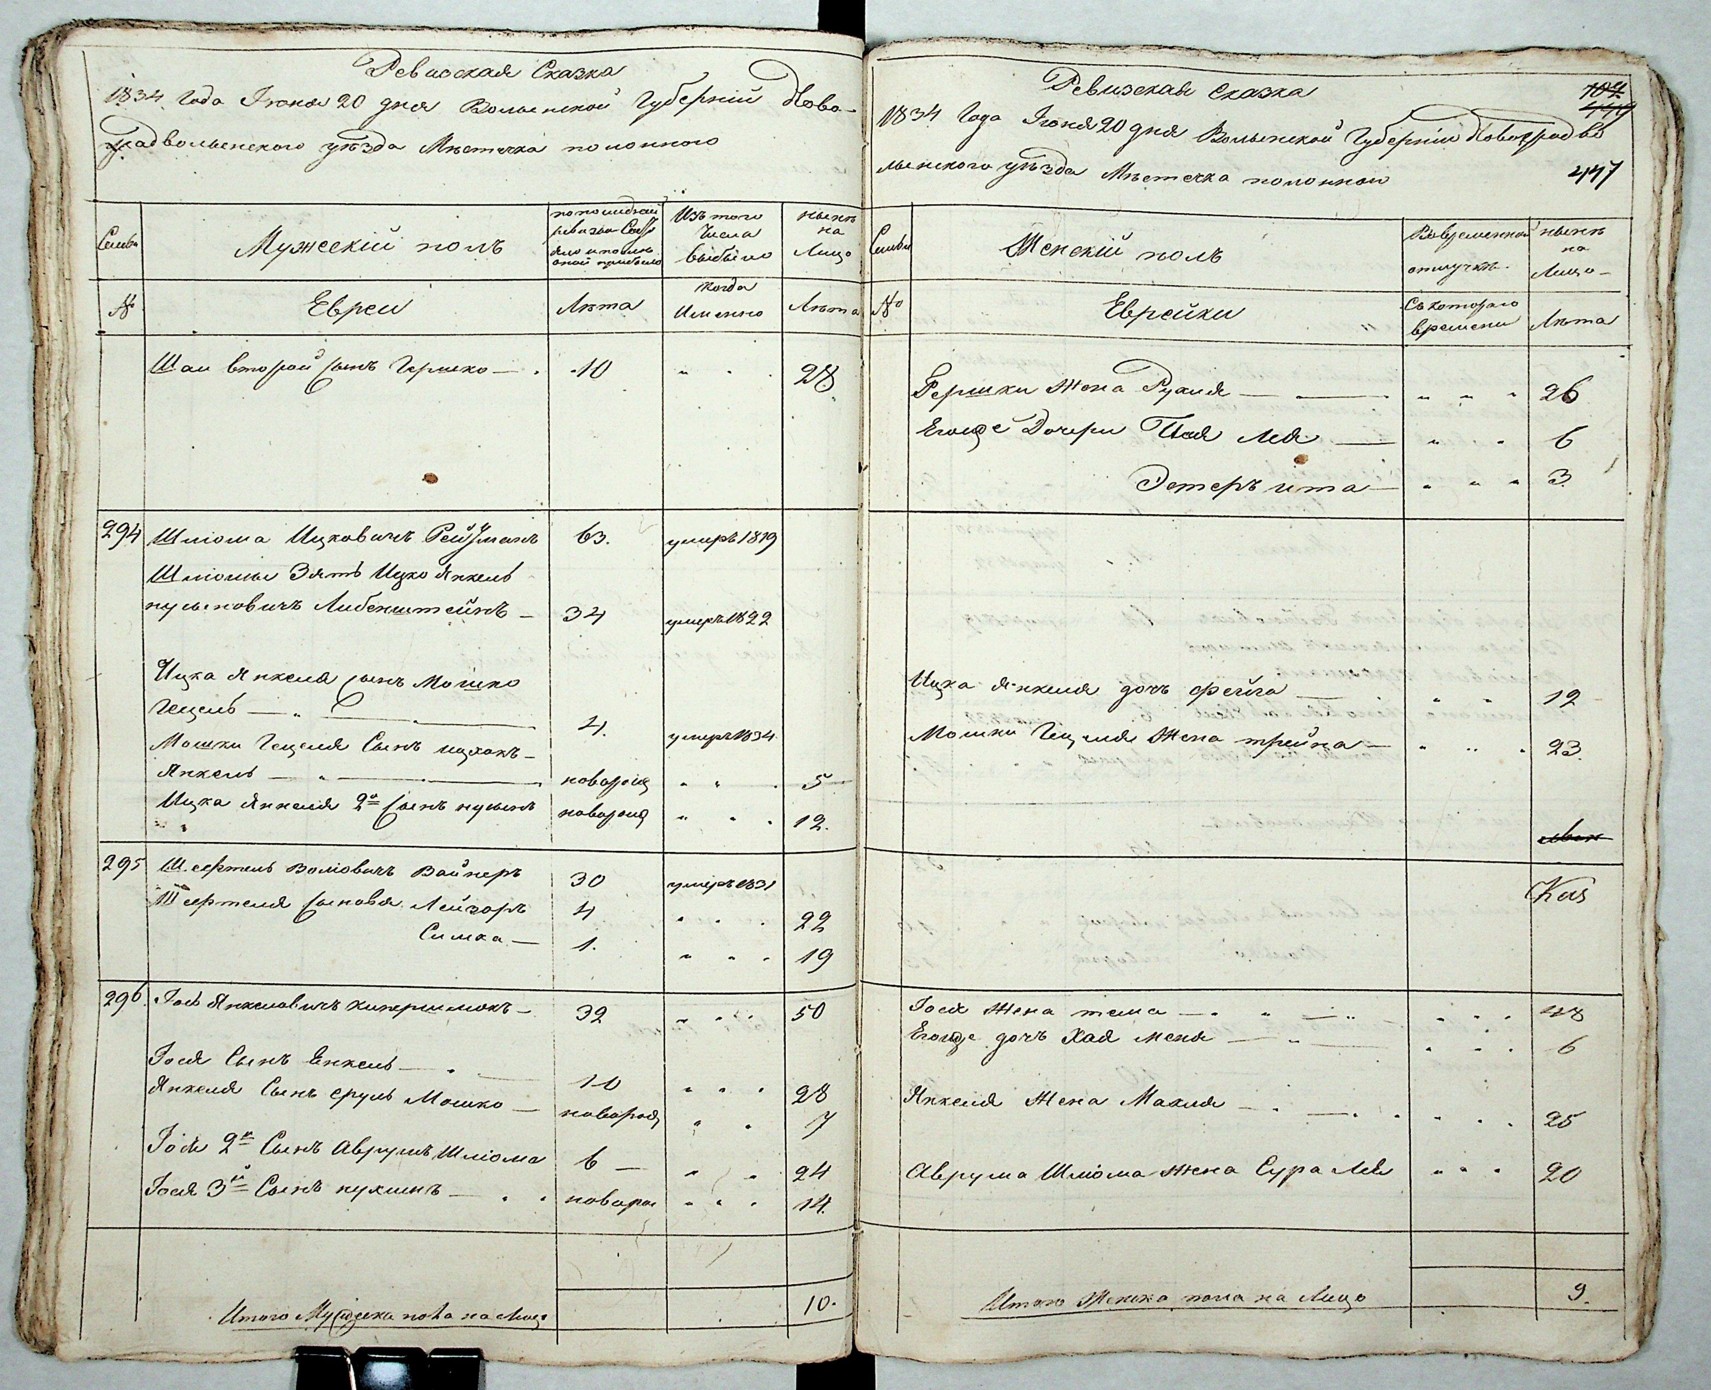 Ревизская Сказка
1834 Года Июня 20 дня Волынской Губерніи Ново-
градволынского уѣзда Мѣстечка полонного
Семьи
Мужескій полъ
по последней
ревизіи Состояло
и после
оной прибыло
Изъ того
Числа
выбыло
ныне
на
Лицо
№
Евреи
Лѣта
Когда
Именно
Лѣта
Шаи второй сынъ Гершко — 10 " " 28
294 Шліома Ицковичъ 63. умеръ 1819
Шліомы Зять Ицко Янкель
нусыновичъ Либенштейнъ — 34 умеръ 1822
Ицка Янкеля сынъ Мошко
Гецель — " — 4. умеръ 1834
Мошки Гецеля Сынъ ицхокъ —
Янкель — " — новорож " " 5
Ицка Янкеля 2й Сынъ нусынъ новорож " " 12.
295 Шефтель Волiовичъ Вайнеръ 30 умеръ 1831
Шефтеля сыновья Лейзоръ 4 " " 22
Симха — 1. " " 19
296. Іось Янкелевичъ — 32 " " 50
Іося Сынъ Енкель — " — 10 " " 28
Янкеля Сынъ сруль Мошко — новорож " " 7
Іося 2й Сынъ Аврумъ Шліома 6 — " " 24
Іося 3й Сынъ нухимъ — " " новорож " " 14.
Итого Мужеска пола на Лицо 10.
Ревизская Сказка
104
447
1834 Года Июня 20 дня Волынской Губерніи Новоградво
лынского уѣзда Мѣстечка полонного
Семьи
Женскій полъ
Вовременной
отлучкѣ
ныне
на
Лицо
№
Еврейки
Съ котораго
времени
Лѣта
Гершки Жена Рухля — " " " 26
Егожъ Дочери Пая Лея — " " " 6
Эстеръ ита — " " " 3
Ицка Янкеля дочь Фейга — " " 12
Мошки Гецеля Жена трейна — " " " 23.
Іося Жена тема — " " 48
Егожъ дочь Хая меня — " " 6
Янкеля Жена Махля — " " 25
Аврума Шліома Жена Сура Лея " " " 20
Итого Женска пола на Лицо 9.